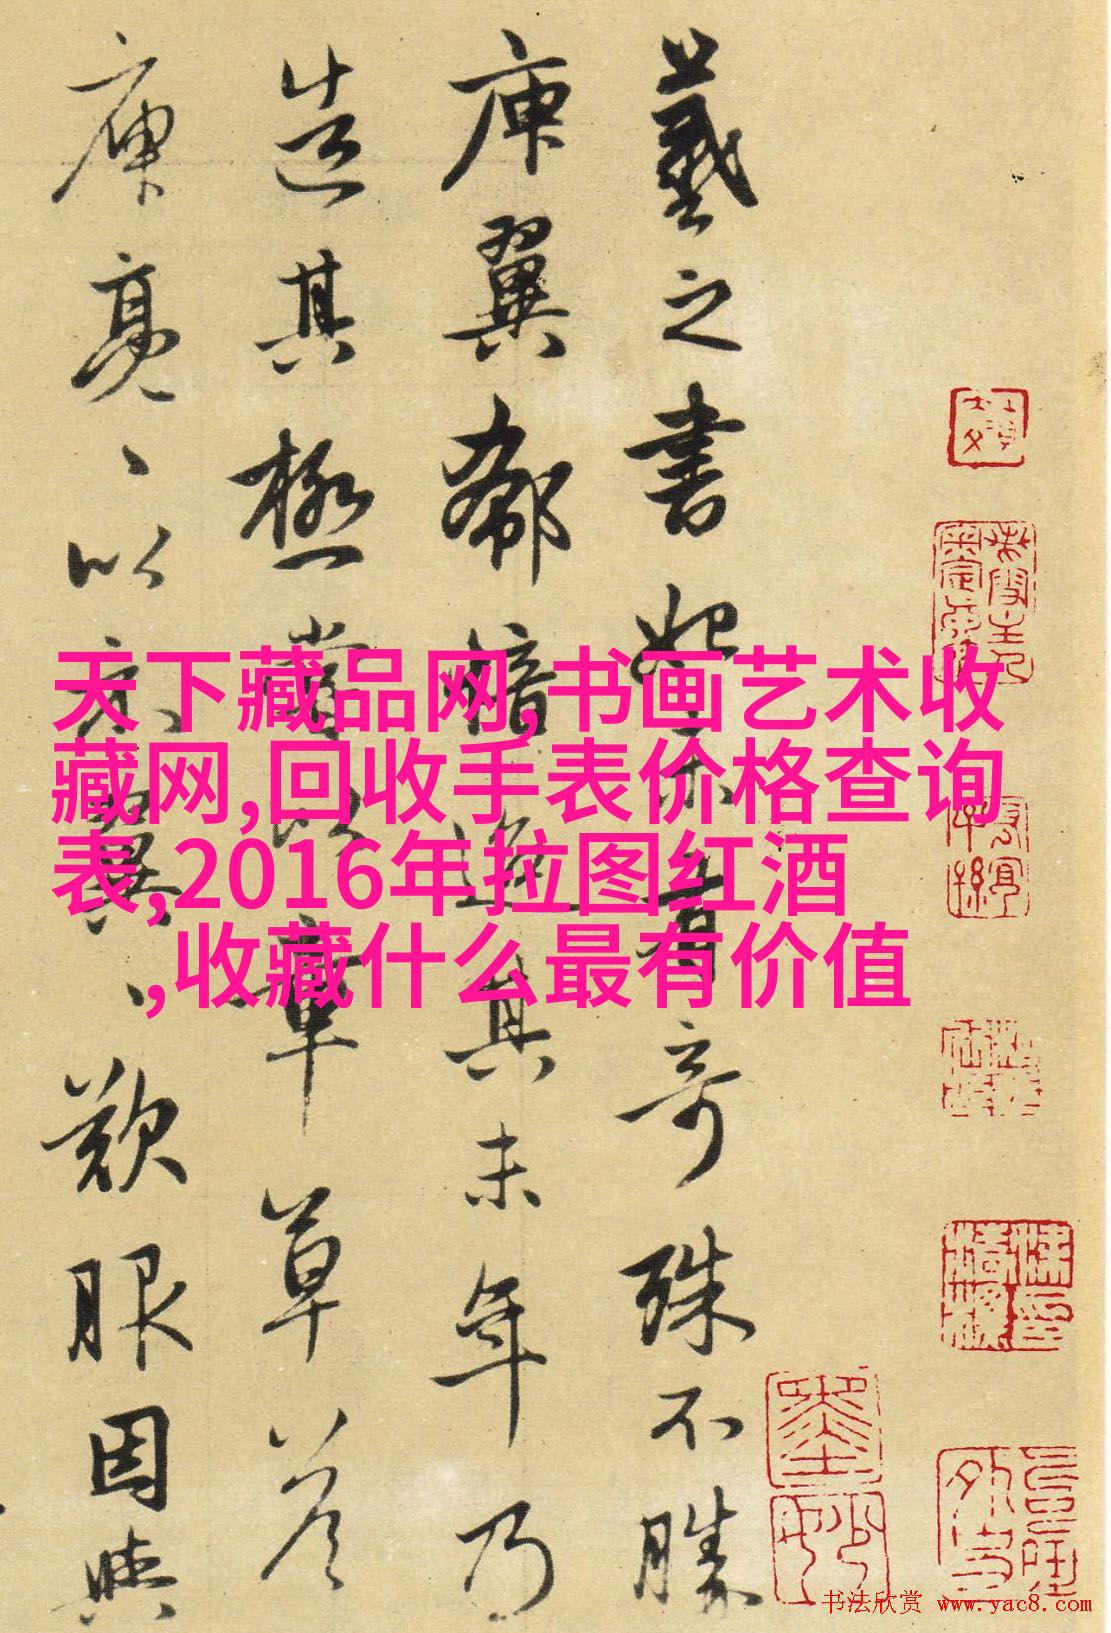 羲之書始未有奇殊不勝
庾翼郗愔迨其末年乃
造其極嘗以章草答
庾亮、以示翼、歎服因與
天下藏品网,书画艺术收
藏网,回收手表价格查询
表,2016年拉图红酒
,收藏什么最有价值
书法欣赏 www.yac8.com